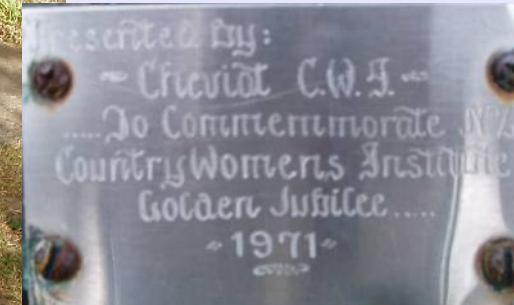 Presented By:
~ Cheviot C.W.I. ~
.....To Commemmorate N.Z.
Country Womens Institute
Golden Jubilee.....
~ 1971 ~